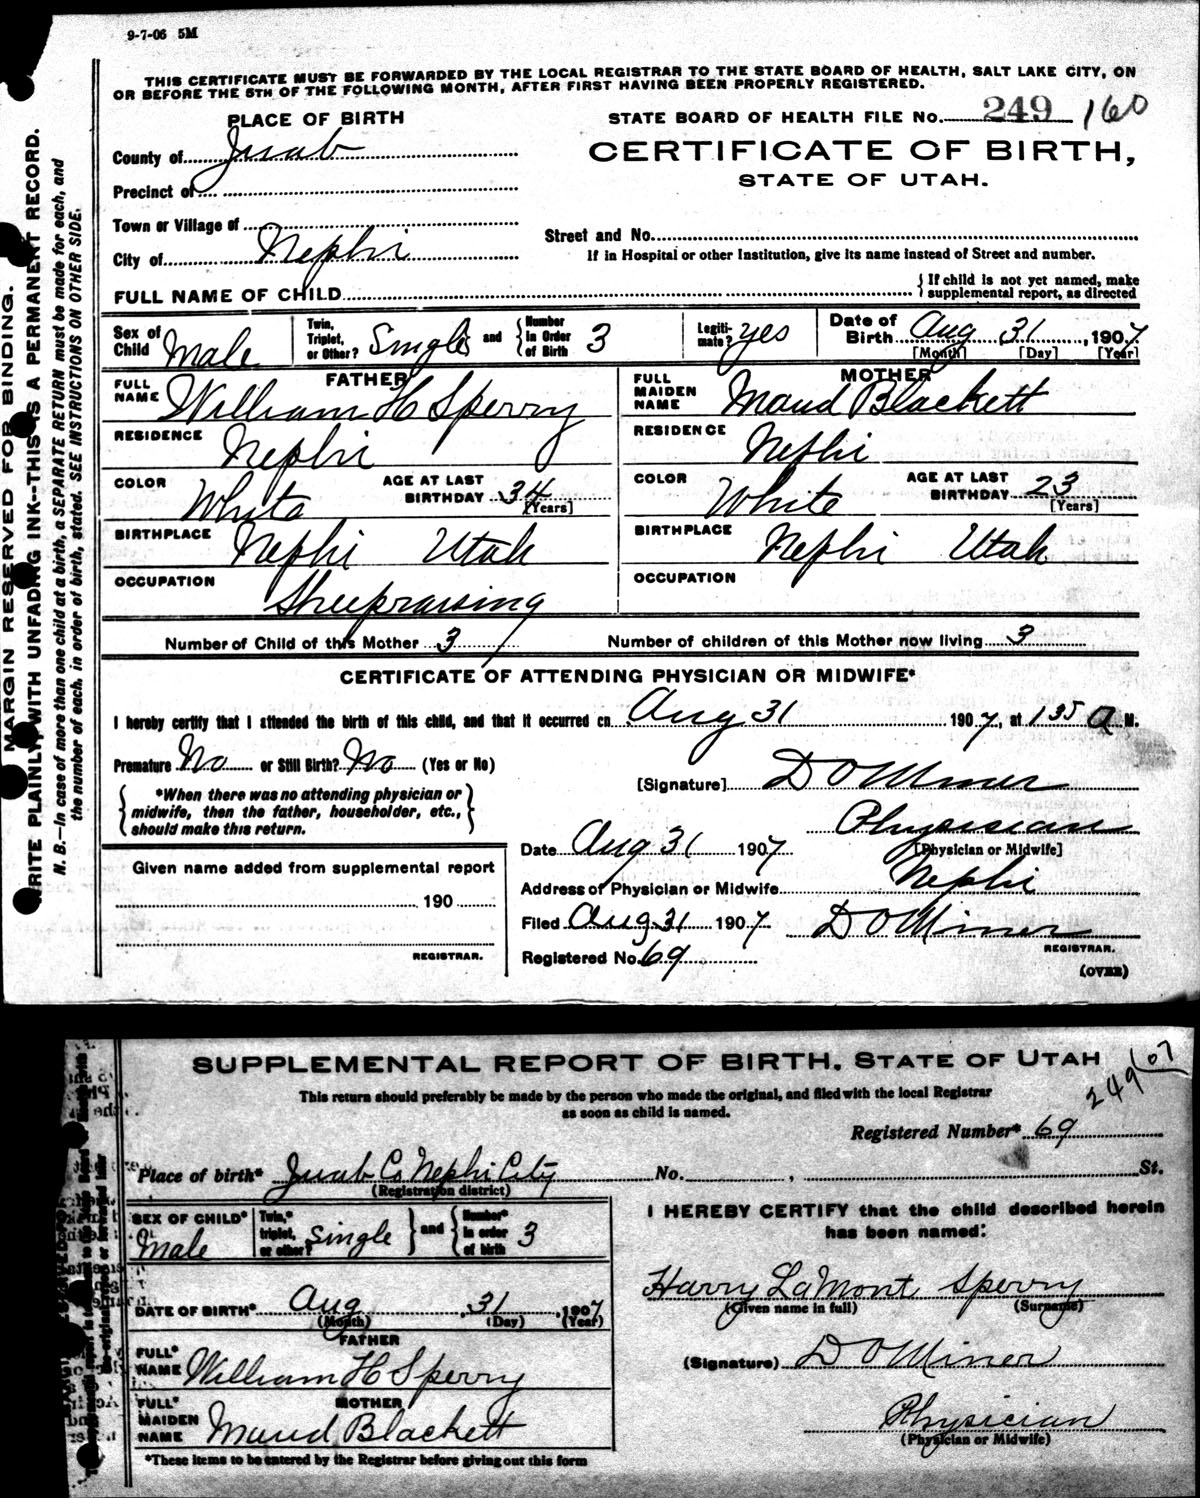 9-7-06 5M
THIS CERTIFICATE MUST BE FORWARDED BY THE LOCAL REGISTRAR TO THE STATE BOARD OF HEALTH, SALT LAKE CITY, ON
OR BEFORE THE 5TH OF THE FOLLOWING MONTH, AFTER FIRST HAVING BEEN PROPERLY REGISTERED.
MARGIN RESERVED FOR BINDING.
WRITE PLAINLY WITH UNFADING INK--THIS IS A PERMANENT RECORD.
N. B.—In case of more than one child at a birth, a SEPARATE RETURN must be made for each, and
the number of each, in order of birth, stated. SEE INSTRUCTIONS ON OTHER SIDE.
PLACE OF BIRTH
STATE BOARD OF HEALTH FILE No. 249 160
County of Juab
CERTIFICATE OF BIRTH,
STATE OF UTAH.
Precinct of
Town or Village of
Street and No.
City of Nephi
If in Hospital or other Institution, give its name instead of Street and number.
FULL NAME OF CHILD
If child is not yet named, make
supplemental report, as directed
Sex of Child Male
Twin, Triplet, or Other? Single and Number in Order of Birth 3
Legitimate? yes
Date of Birth Aug 31, 1907
[Month] [Day] [Year]
FATHER
FULL NAME William H Sperry
MOTHER
FULL MAIDEN NAME Maud Blackett
RESIDENCE Nephi
RESIDENCE Nephi
COLOR White AGE AT LAST BIRTHDAY 34 [Years]
COLOR White AGE AT LAST BIRTHDAY 23 [Years]
BIRTHPLACE Nephi Utah
BIRTHPLACE Nephi Utah
OCCUPATION Sheepraising
OCCUPATION
Number of Child of this Mother 3 Number of children of this Mother now living 3
CERTIFICATE OF ATTENDING PHYSICIAN OR MIDWIFE*
I hereby certify that I attended the birth of this child, and that it occurred on Aug 31 1907, at 1 35 a M.
Premature No or Still Birth? No (Yes or No)
[Signature] D O Miner
*When there was no attending physician or
midwife, then the father, householder, etc.,
should make this return.
Physician
[Physician or Midwife]
Date Aug 31 1907
Given name added from supplemental report
Address of Physician or Midwife Nephi
190
Filed Aug 31 1907 D O Miner
REGISTRAR.
REGISTRAR.
Registered No. 69
(OVER)
SUPPLEMENTAL REPORT OF BIRTH, STATE OF UTAH
249/07
This return should preferably be made by the person who made the original, and filed with the local Registrar
as soon as child is named.
Registered Number* 69
Place of birth* Juab Co Nephi City No. , St.
(Registration district)
SEX OF CHILD* Male
Twin,* triplet, or other? Single and Number* in order of birth 3
I HEREBY CERTIFY that the child described herein
has been named:
DATE OF BIRTH* Aug 31, 1907
(Month) (Day) (Year)
Harry LaMont Sperry
(Given name in full) (Surname)
FATHER
FULL* NAME William H Sperry
(Signature) D O Miner
MOTHER
FULL* MAIDEN NAME Maud Blackett
Physician
(Physician or Midwife)
*These items to be entered by the Registrar before giving out this form